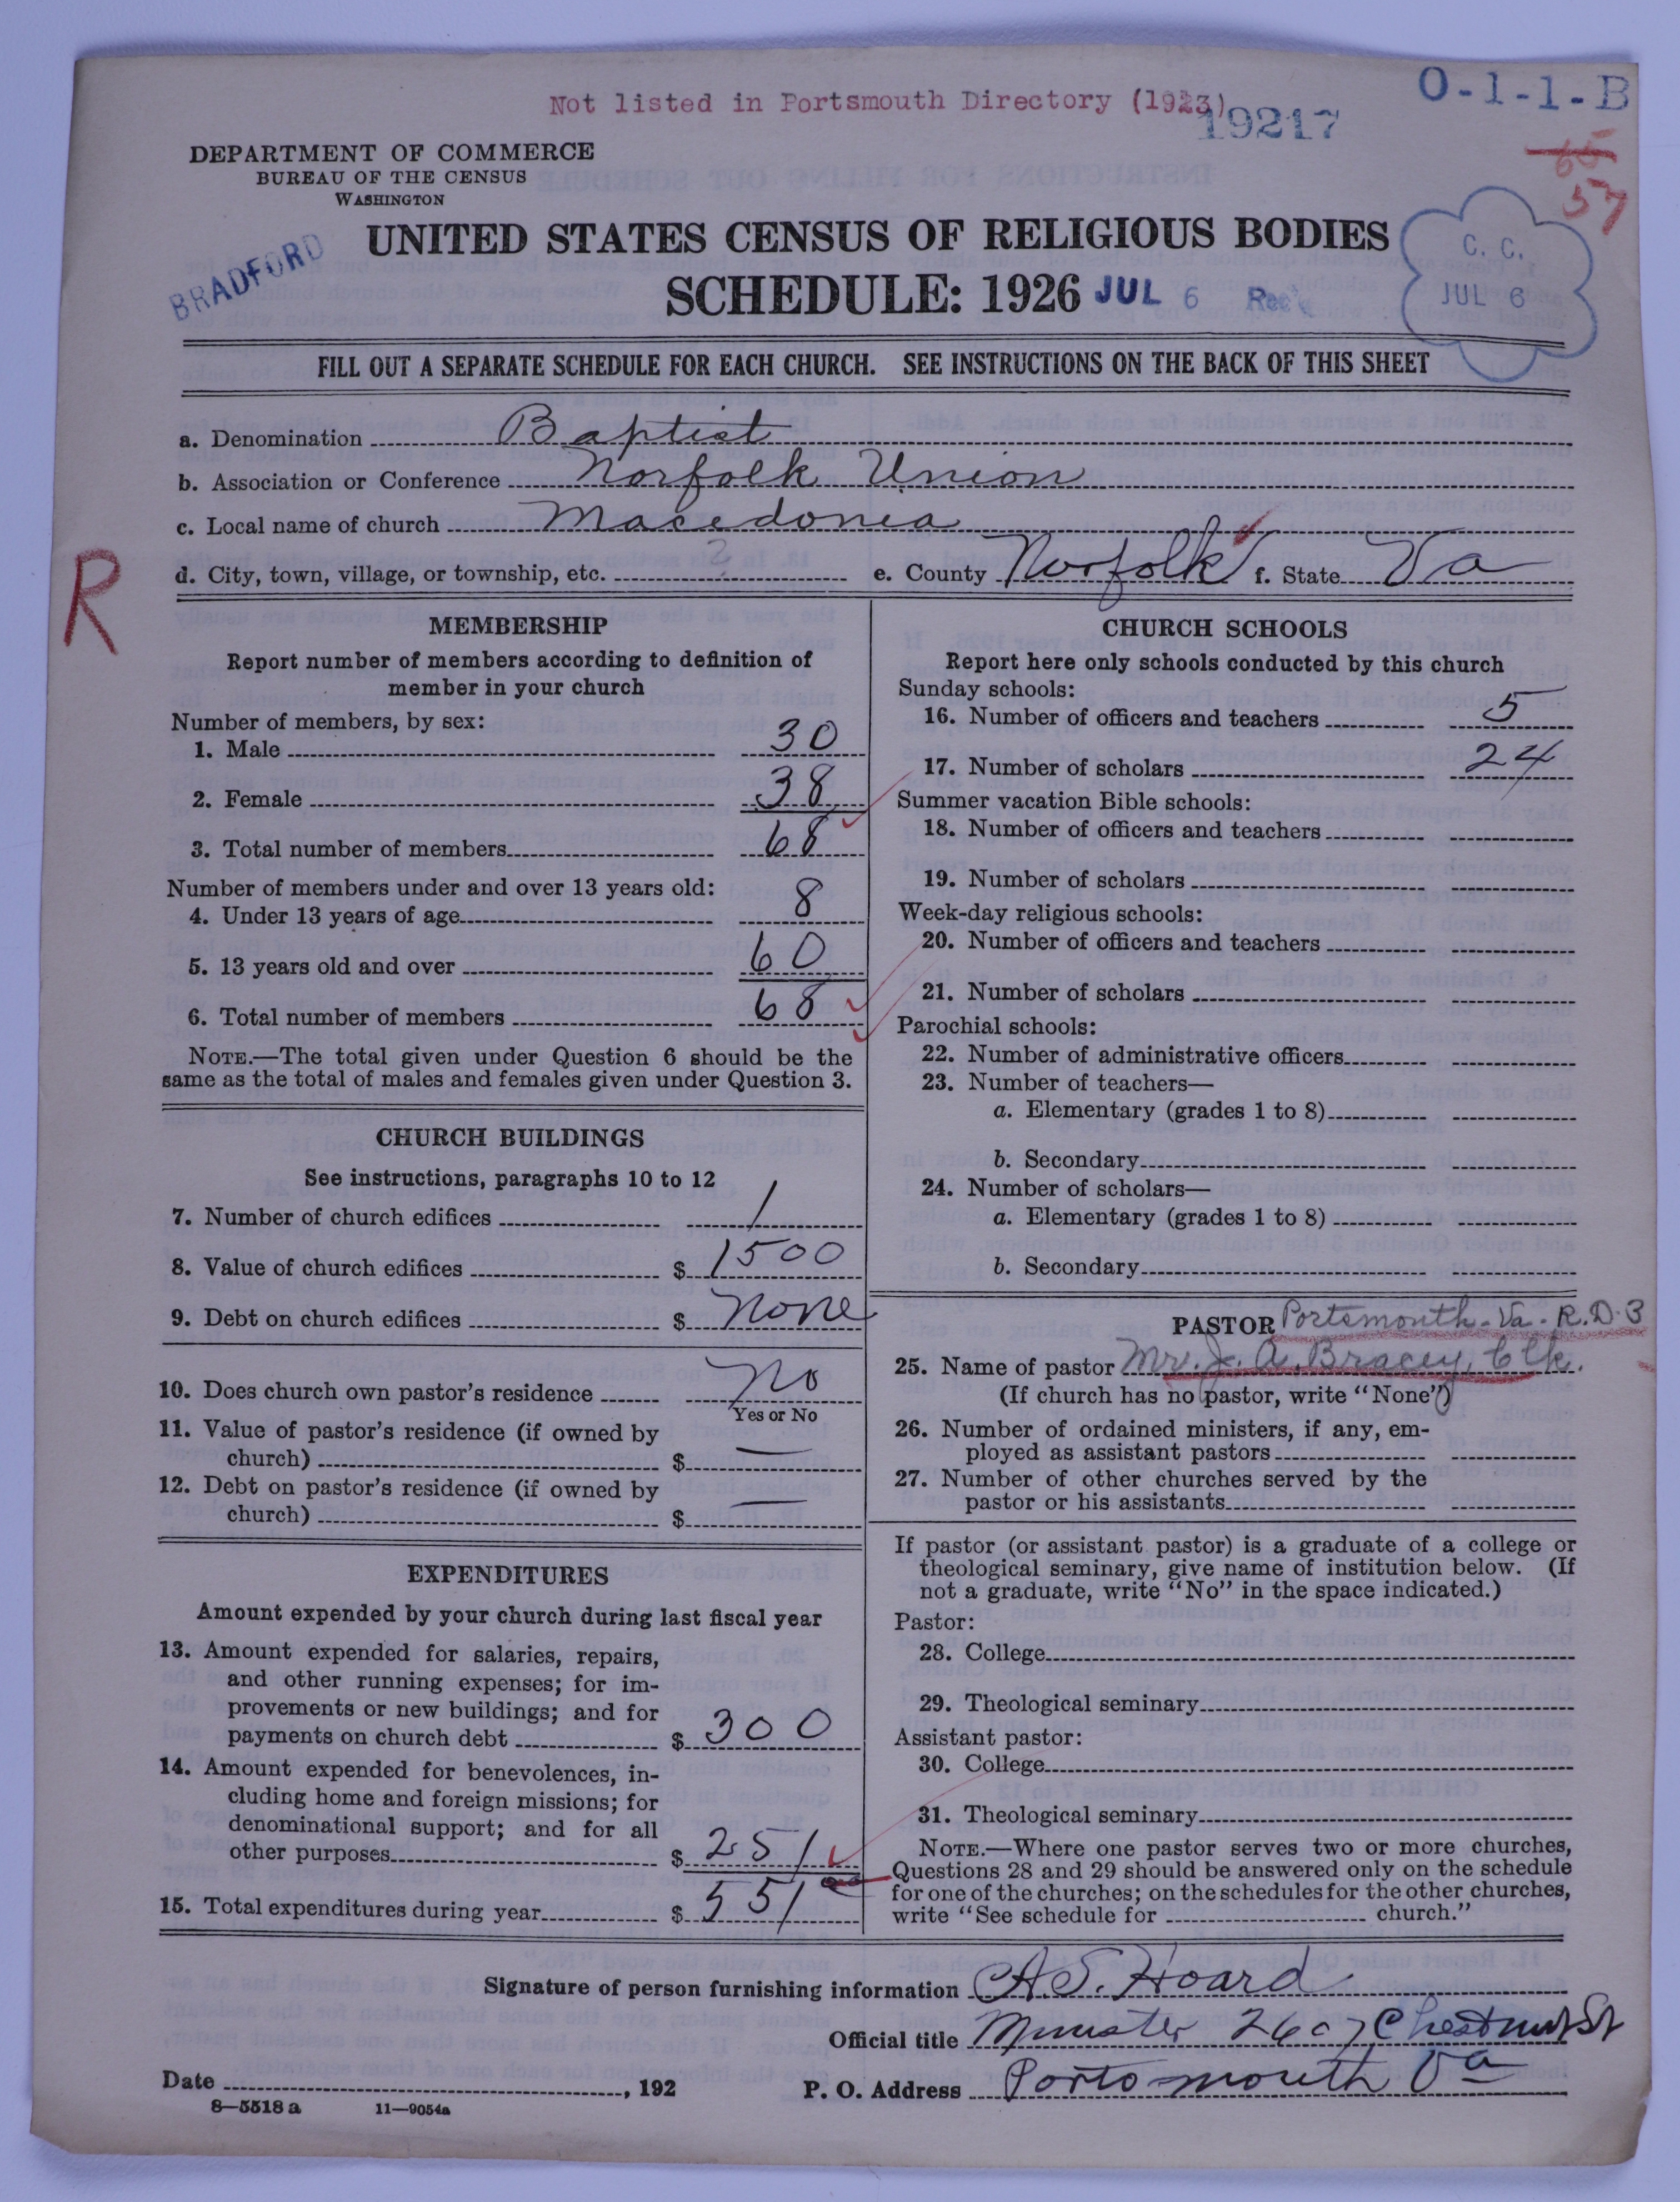 O-1-1-B
Not listed in Portsmouth Directory (1923)
19217
65
57
DEPARTMENT OF COMMERCE
BUREAU OF THE CENSUS
WASHINGTON
BRADFORD
UNITED STATES CENSUS OF RELIGIOUS BODIES
SCHEDULE: 1926
JUL 6 Rec'd
C. C.
JUL 6
FILL OUT A SEPARATE SCHEDULE FOR EACH CHURCH. SEE INSTRUCTIONS ON THE BACK OF THIS SHEET
a. Denomination Baptist
b. Association or Conference Norfolk Union
c. Local name of church Macedonia
d. City, town, village, or township, etc. ? e. County Norfolk f. State Va
R
MEMBERSHIP
Report number of members according to definition of
member in your church
Number of members, by sex:
1. Male 30
2. Female 38
3. Total number of members 68
Number of members under and over 13 years old:
4. Under 13 years of age 8
5. 13 years old and over 60
6. Total number of members 68
NOTE.—The total given under Question 6 should be the
same as the total of males and females given under Question 3.
CHURCH BUILDINGS
See instructions, paragraphs 10 to 12
7. Number of church edifices 1
8. Value of church edifices $ 1500
9. Debt on church edifices $ None
10. Does church own pastor's residence No
Yes or No
11. Value of pastor's residence (if owned by
church) $ —
12. Debt on pastor's residence (if owned by
church) $ —
EXPENDITURES
Amount expended by your church during last fiscal year
13. Amount expended for salaries, repairs,
and other running expenses; for im-
provements or new buildings; and for
payments on church debt $ 300
14. Amount expended for benevolences, in-
cluding home and foreign missions; for
denominational support; and for all
other purposes $ 251
15. Total expenditures during year $ 551 00
CHURCH SCHOOLS
Report here only schools conducted by this church
Sunday schools:
16. Number of officers and teachers 5
17. Number of scholars 24
Summer vacation Bible schools:
18. Number of officers and teachers
19. Number of scholars
Week-day religious schools:
20. Number of officers and teachers
21. Number of scholars
Parochial schools:
22. Number of administrative officers
23. Number of teachers—
a. Elementary (grades 1 to 8)
b. Secondary
24. Number of scholars—
a. Elementary (grades 1 to 8)
b. Secondary
PASTOR Portsmouth. Va. R.D. 3
25. Name of pastor Mr. J. A. Bracey, Clk.
(If church has no pastor, write "None")
26. Number of ordained ministers, if any, em-
ployed as assistant pastors
27. Number of other churches served by the
pastor or his assistants
If pastor (or assistant pastor) is a graduate of a college or
theological seminary, give name of institution below. (If
not a graduate, write "No" in the space indicated.)
Pastor:
28. College
29. Theological seminary
Assistant pastor:
30. College
31. Theological seminary
NOTE.—Where one pastor serves two or more churches,
Questions 28 and 29 should be answered only on the schedule
for one of the churches; on the schedules for the other churches,
write "See schedule for church."
Signature of person furnishing information A. S. Hoard
Official title Minister 2607 Chestnut St
Date , 192 P. O. Address Portsmouth Va
8—5518 a 11—9054a